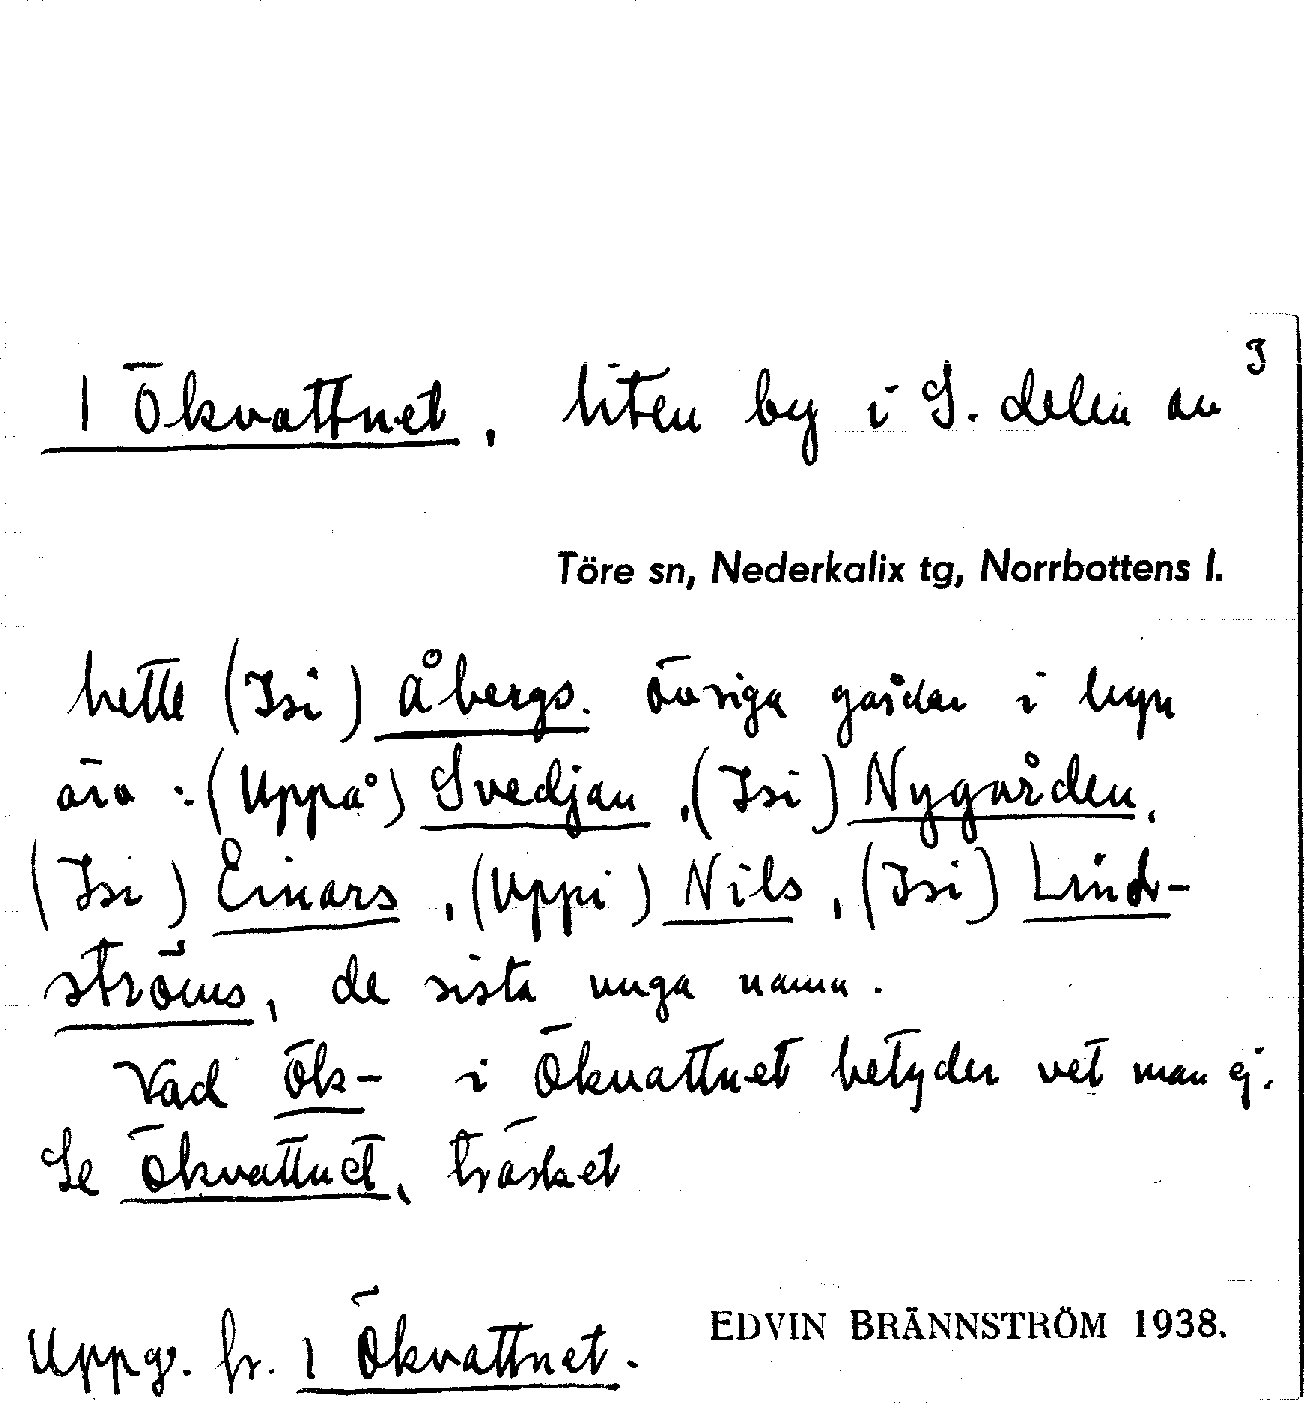 3
1 Ökvattnet, liten by i S. delen av
Töre sn, Nederkalix tg, Norrbottens l.
hette (Isi) Åbergs. övriga gårdar i byn
äro : (Uppå) Svedjan, (Isi) Nygården,
(Isi) Einars, (Uppi) Nils, (Isi) Lind-
ströms, de sista unga namn.
Vad Ök- i Ökvattnet betyder vet man ej.
Se Ökvattnet, träsket
EDVIN BRÄNNSTRÖM 1938.
Uppg. fr. 1 Ökvattnet.